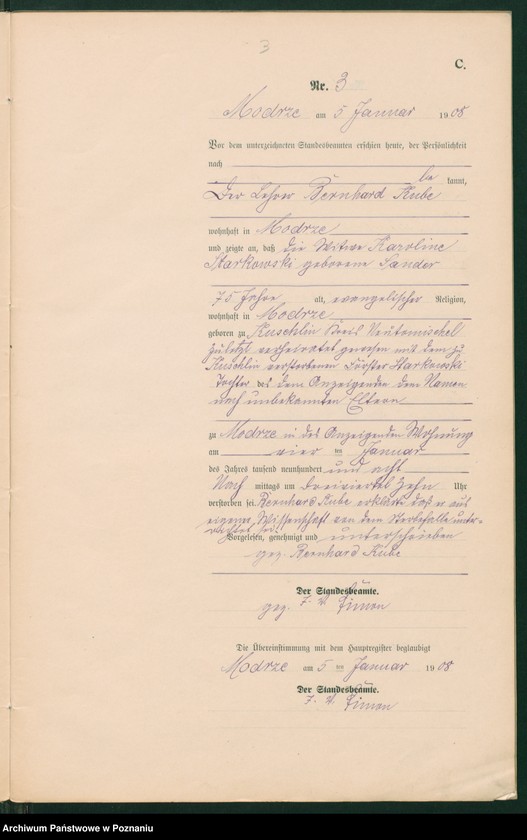 3
C.
Nr. 3
Modrze am 5 Januar 1908
Vor dem unterzeichneten Standesbeamten erschien heute, der Persönlichkeit
nach
be kannt,
Der Lehrer Bernhard Kube
wohnhaft in Modrze
und zeigte an, daß die Witwe Karoline
Starkowski geborene Sander
75 Jahre alt, evangelischer Religion,
wohnhaft in Modrze
geboren zu Kuschlin Kreis Neutomischel
zuletzt verheiratet gewesen mit dem zu
Kuschlin verstorbenen Förster Starkowski
Tochter des dem Anzeigenden dem Namen
nach unbekannten Eltern
zu Modrze in des Anzeigenden Wohnung
am vier ten Januar
des Jahres tausend neunhundert und acht
Nach mittags um dreiviertel zehn Uhr
verstorben sei. Bernhard Kube erklärte daß er aus
eigener Wissenschaft von dem Sterbefalle unter-
richtet sei.
Vorgelesen, genehmigt und unterschrieben
gez. Bernhard Kube
Der Standesbeamte.
gez. J. V. Timon
Die Übereinstimmung mit dem Hauptregister beglaubigt
Modrze am 5 ten Januar 1908
Der Standesbeamte.
J. V. Timon
Archiwum Państwowe w Poznaniu